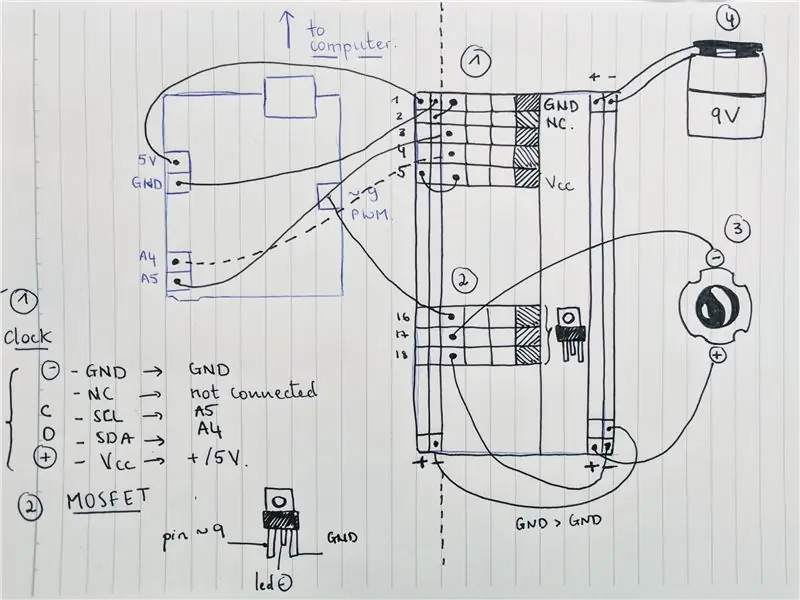 to
computer.
1
4
+ -
1
2
3
4
5
GND
NC.
Vcc
9V
5V
GND
~9
PWM.
A4
A5
3
-
+
2
16
17
18
+ -
+ -
GND > GND
1
Clock
- - GND → GND
- NC → not connected
C - SCL → A5
D - SDA → A4
+ - Vcc → +/5V.
2 MOSFET
pin ~9
GND
led -